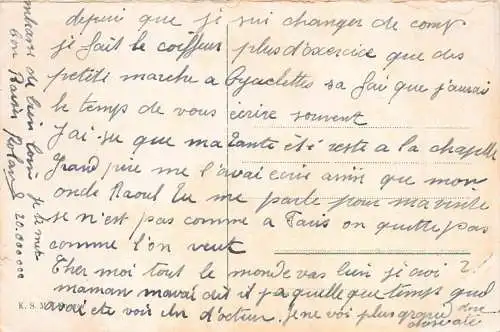 depuis que je sui changer de comp
je fait le coiffeur plus d'exercice que des
petite marche a byciclettes sa fai que j'aurai
le temps de vous écrire souvent
J'ai su que ma tante été resté a la chapelle
Grand père me l'avai écri ainsi que mon
oncle Raoul Tu me parle pour ma visite
se n'est pas comme a Paris on quitte pas
comme l'on veut
Cher moi tout le monde vas bien je
maman mavai dit il ja quelque temps que
avai été voir un d'octeur. je ne voi plus
je te met
bon Baisér
20.000000
K. S.